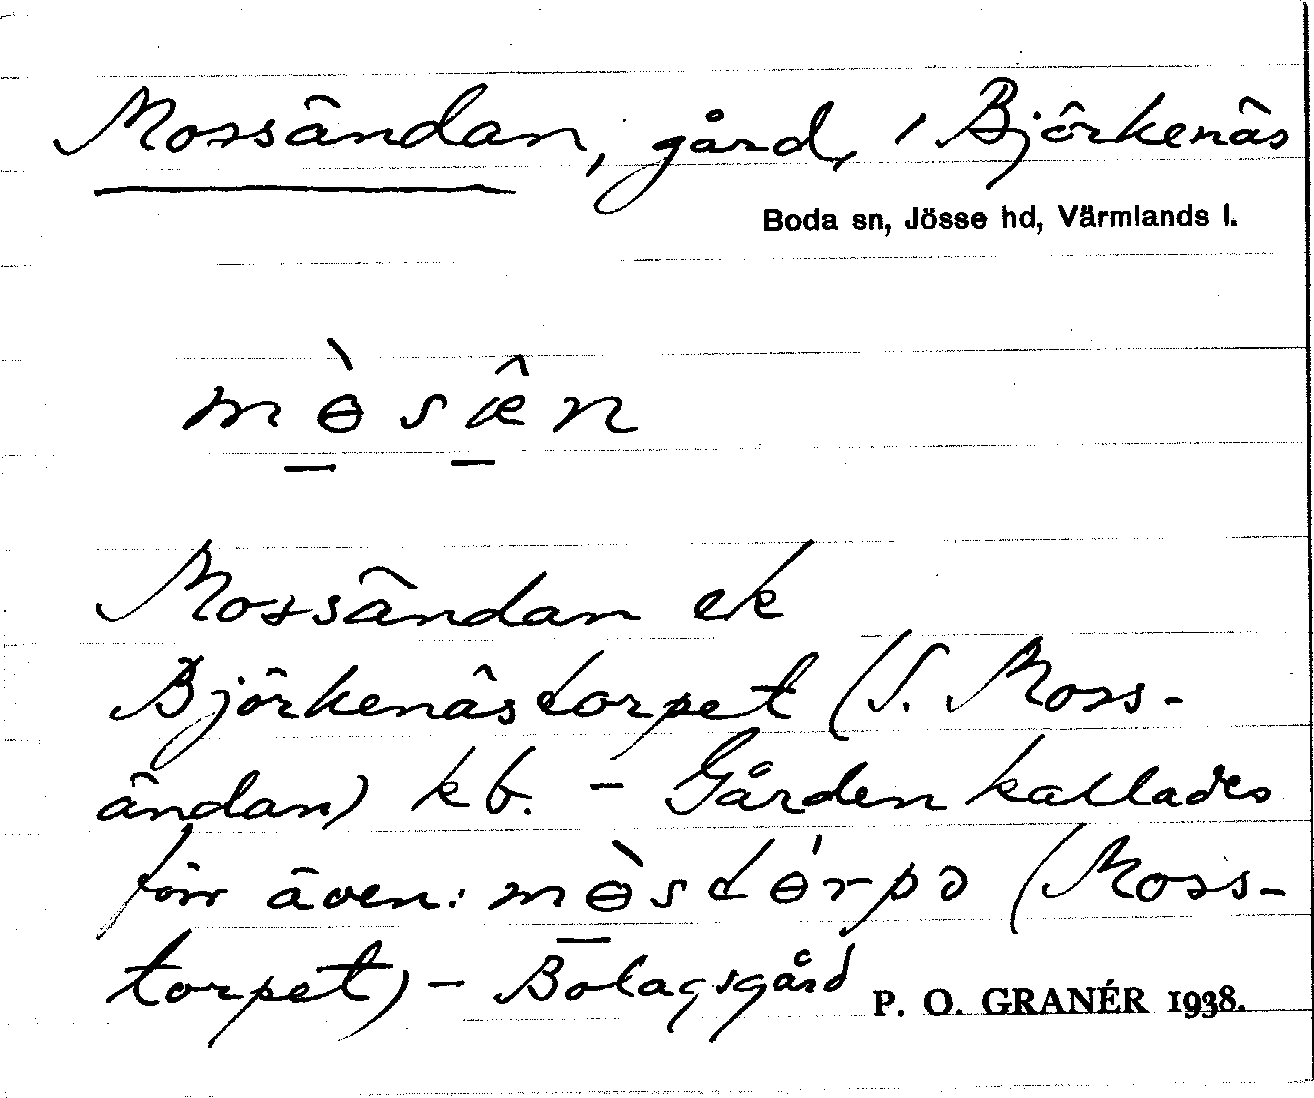 Mossändan, gård, i Björkenäs
Boda sn, Jösse hd, Värmlands l.
mɵ̀sæ̂n
Mossändan ek
Björkenästorpet (S. Moss-
ändan) kb. – Gården kallades
förr även: mɵ̀stɵ́rpə (Moss-
torpet) – Bolagsgård
P. O. GRANÉR 1938.